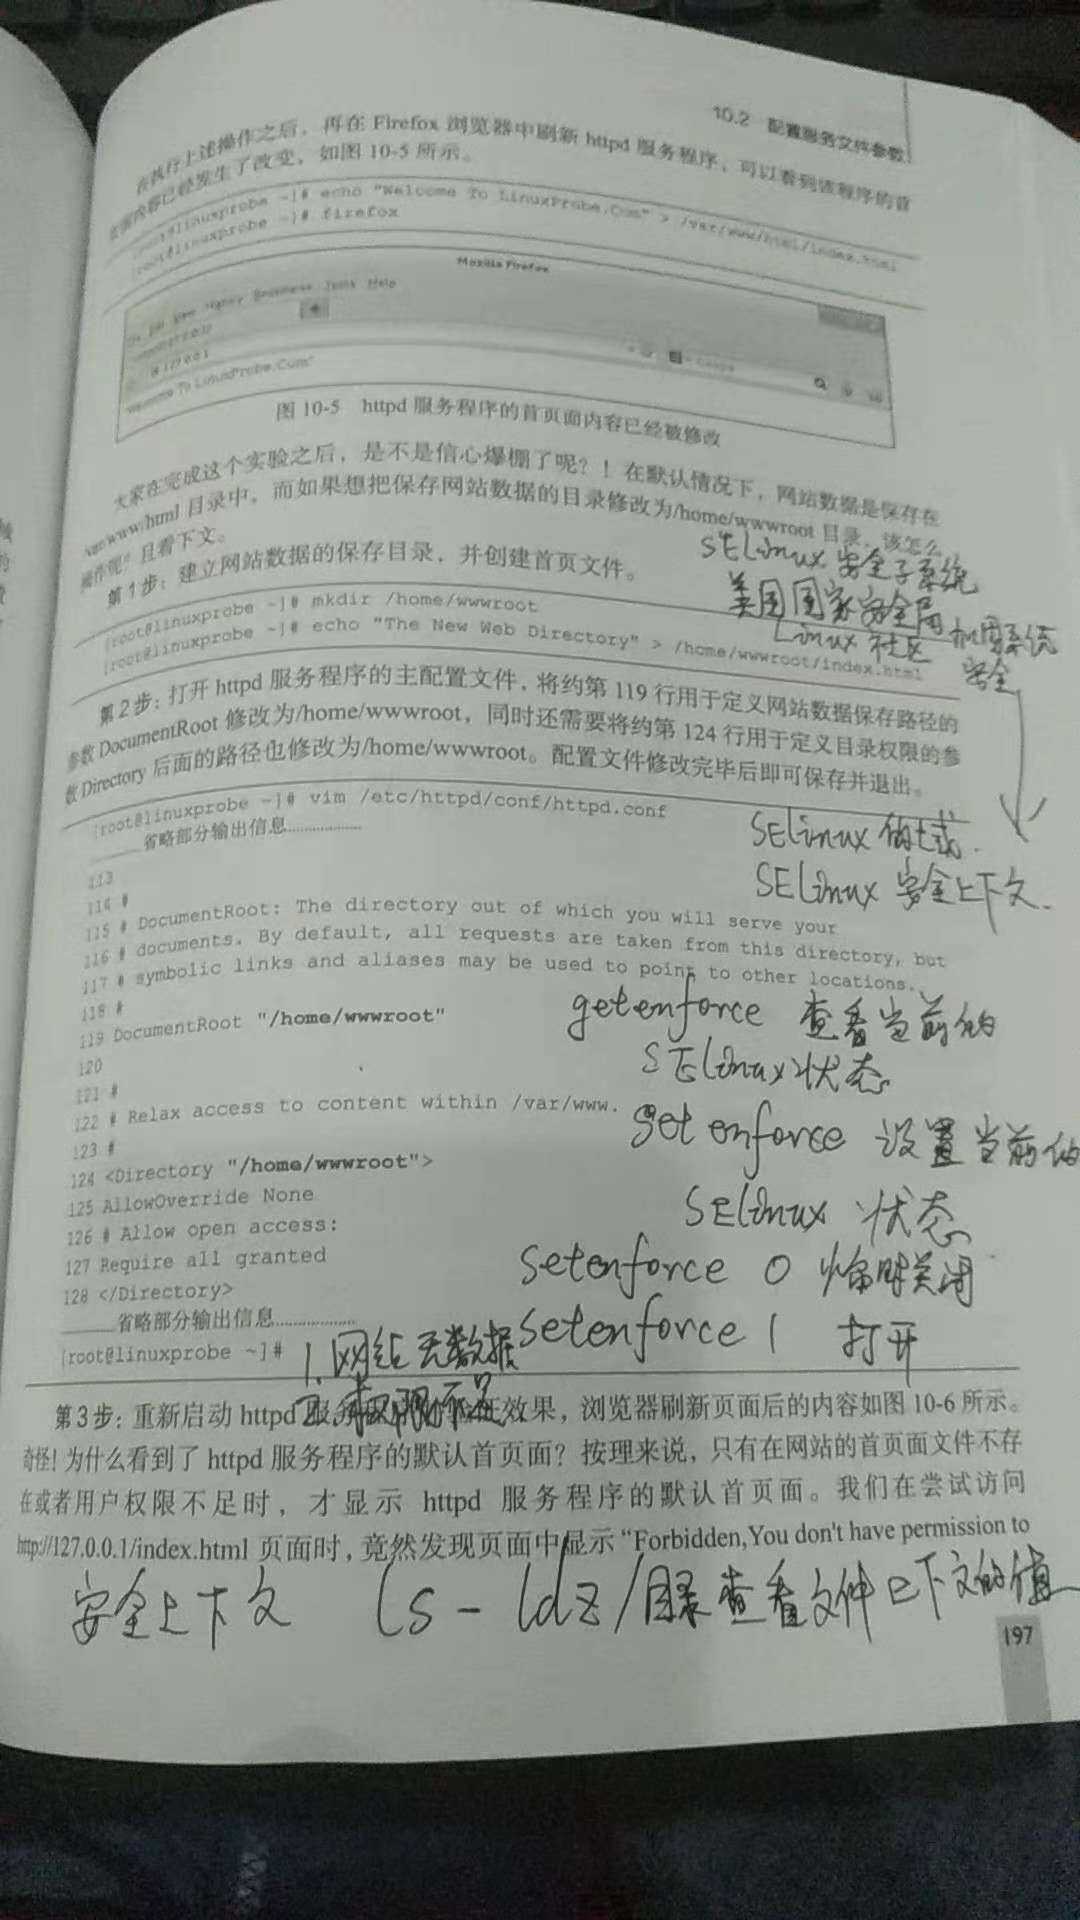 10.2 配置服务文件参数
在执行上述操作之后，再在 Firefox 浏览器中刷新 httpd 服务程序，可以看到该程序的首
页面内容已经发生了改变，如图 10-5 所示。
[root@linuxprobe ~]# echo "Welcome To LinuxProbe.Com" > /var/www/html/index.html
[root@linuxprobe ~]# firefox
Mozilla Firefox
View History Bookmarks Tools Help
127.0.0.1
Welcome To LinuxProbe.Com"
图 10-5 httpd 服务程序的首页面内容已经被修改
大家在完成这个实验之后，是不是信心爆棚了呢？！在默认情况下，网站数据是保存在
/var/www/html 目录中，而如果想把保存网站数据的目录修改为/home/wwwroot 目录，该怎么
操作呢？且看下文。
SELinux 安全子系统
第 1 步：建立网站数据的保存目录，并创建首页文件。
美国国家安全局
[root@linuxprobe ~]# mkdir /home/wwwroot
Linux 社区 加固系统
安全
[root@linuxprobe ~]# echo "The New Web Directory" > /home/wwwroot/index.html
第 2 步：打开 httpd 服务程序的主配置文件，将约第 119 行用于定义网站数据保存路径的
参数 DocumentRoot 修改为/home/wwwroot，同时还需要将约第 124 行用于定义目录权限的参
数 Directory 后面的路径也修改为/home/wwwroot。配置文件修改完毕后即可保存并退出。
[root@linuxprobe ~]# vim /etc/httpd/conf/httpd.conf
______省略部分输出信息..................
SELinux 的域
SELinux 安全上下文.
113
114 #
115 # DocumentRoot: The directory out of which you will serve your
116 # documents. By default, all requests are taken from this directory, but
117 # symbolic links and aliases may be used to point to other locations.
118 #
getenforce 查看当前的
119 DocumentRoot "/home/wwwroot"
SELinux 状态
120
121 #
122 # Relax access to content within /var/www.
setenforce 设置当前的
123 #
124 <Directory "/home/wwwroot">
125 AllowOverride None
SELinux 状态
126 # Allow open access:
127 Require all granted
setenforce 0 关闭
128 </Directory>
______省略部分输出信息..................
setenforce 1 打开
[root@linuxprobe ~]#
1. 网站无数据
2. 权限不足
第 3 步：重新启动 httpd 服务程序并验证效果，浏览器刷新页面后的内容如图 10-6 所示。
奇怪！为什么看到了 httpd 服务程序的默认首页面？按理来说，只有在网站的首页面文件不存
在或者用户权限不足时，才显示 httpd 服务程序的默认首页面。我们在尝试访问
http://127.0.0.1/index.html 页面时，竟然发现页面中显示“Forbidden,You don't have permission to
安全上下文 ls -ldZ /目录 查看文件上下文的值
197